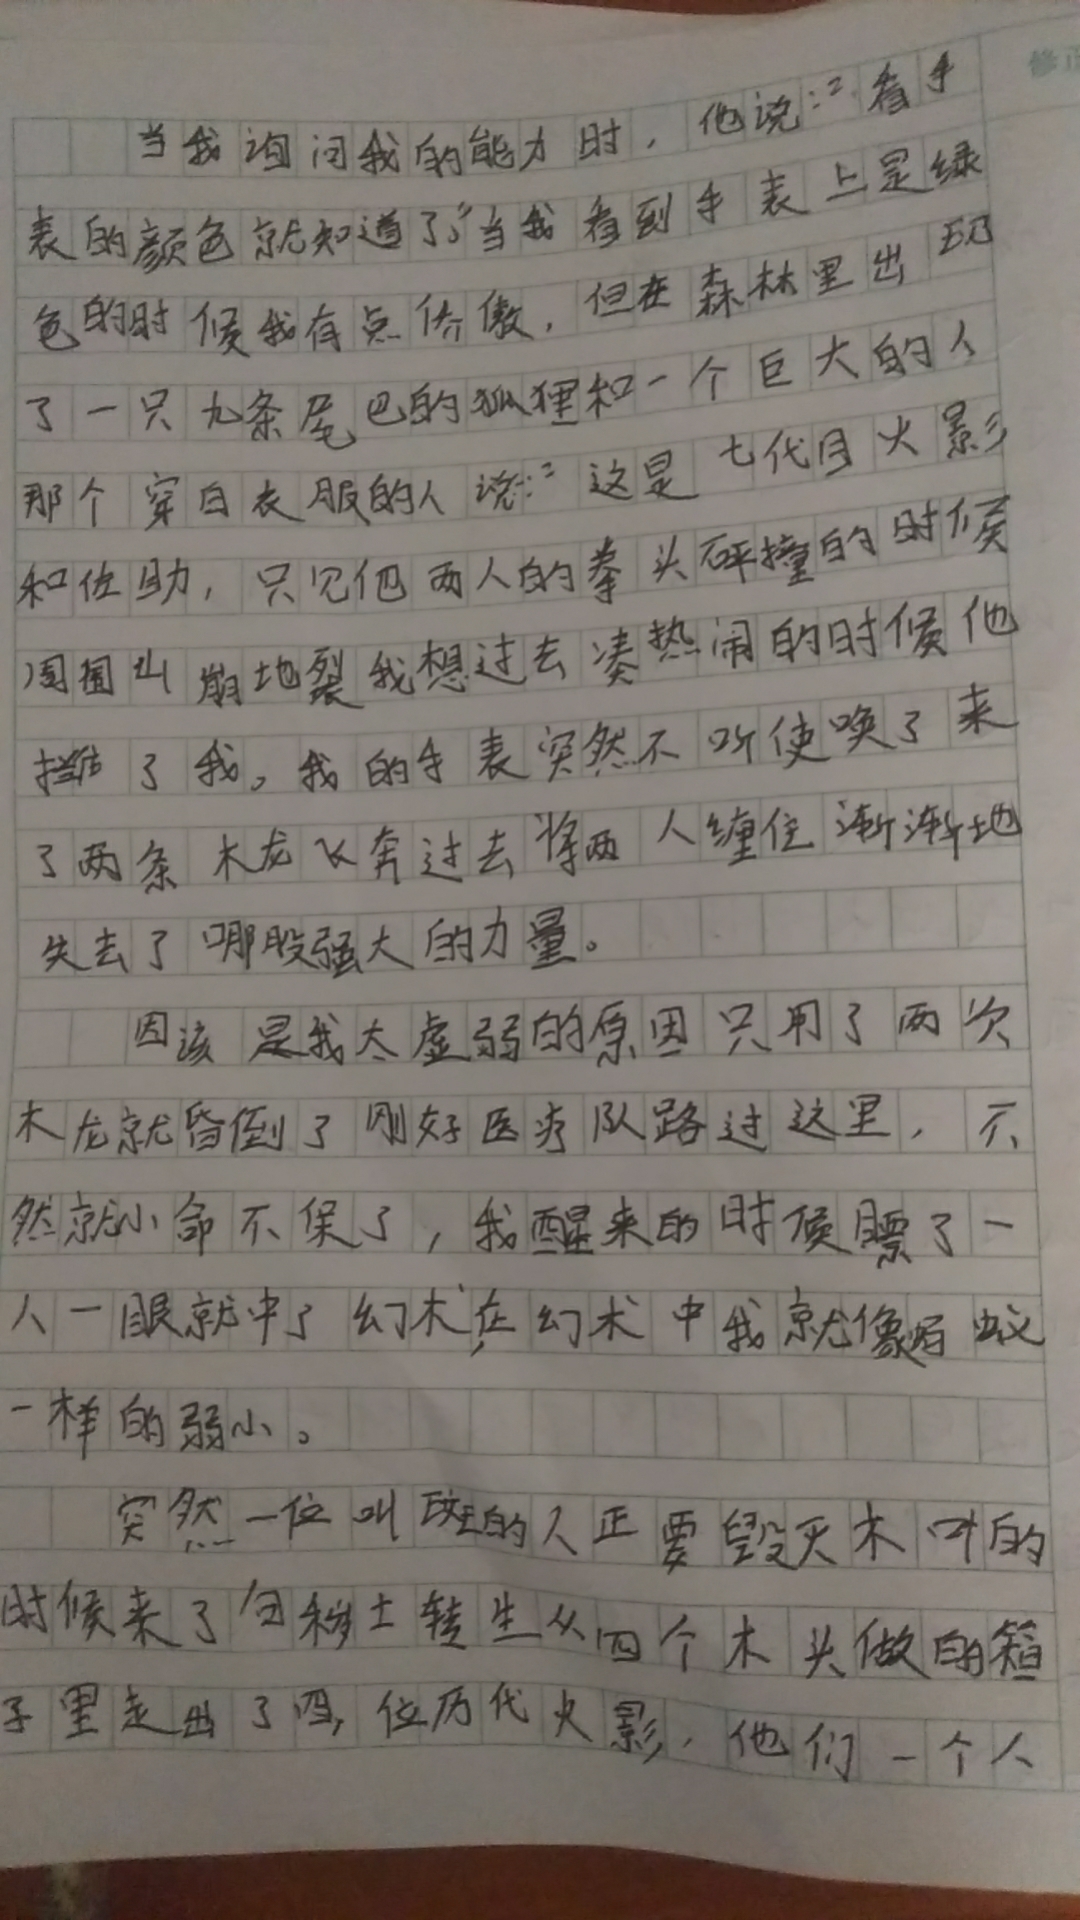 修正
当我询问我的能力时，他说：“看手
表的颜色就知道了”当我看到手表上是绿
色的时候我有点侨傲，但在森林里出现
了一只九条尾巴的狐狸和一个巨大的人
那个穿白衣服的人说：“这是七代目火影
和佐助，只见他两人的拳头砰撞的时候
周围山崩地裂我想过去凑热闹的时候他
拦了我。我的手表突然不听使唤了来
了两条木龙飞奔过去将两人缠住渐渐地
失去了哪股强大的力量。
因该是我太虚弱的原因只用了两次
木龙就昏倒了刚好医疗队路过这里，不
然就小命不保了，我醒来的时候瞟了一
人一眼就中了幻术，在幻术中我就像蚂蚁
一样的弱小。
突然一位叫斑的人正要毁灭木叶的
时候来了个秽土转生从四个木头做的箱
子里走出了四，位历代火影，他们一个人